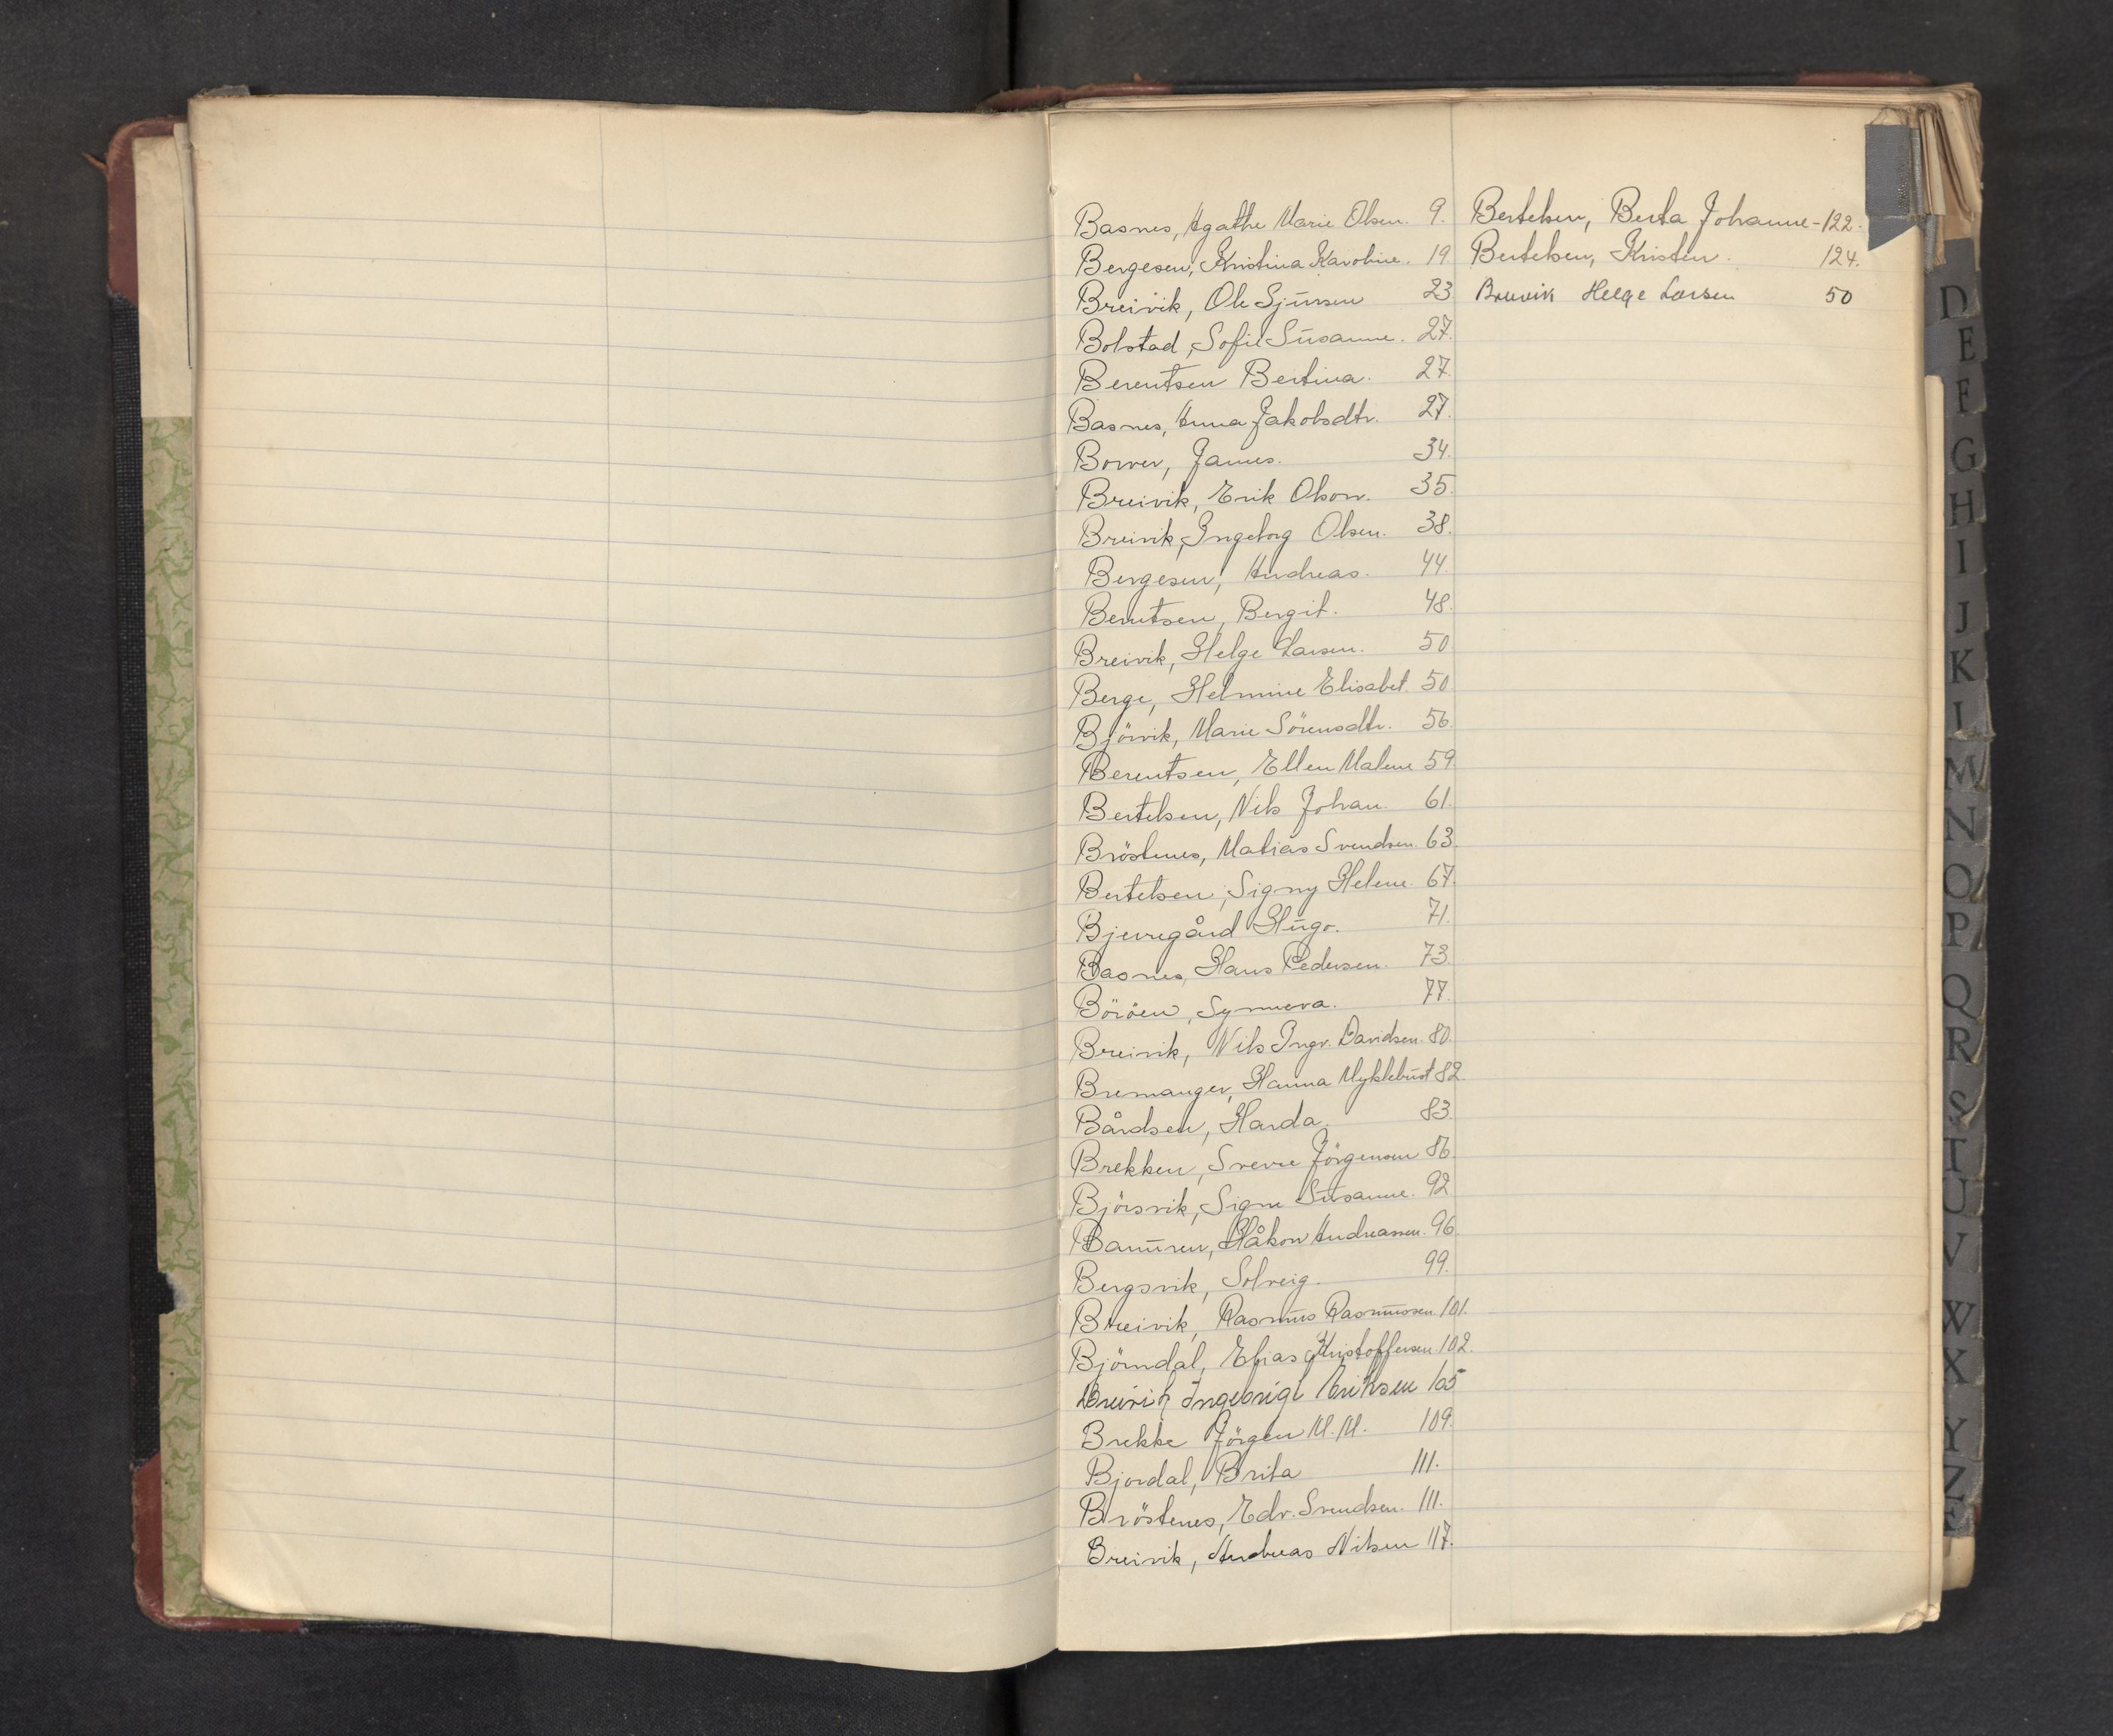 Basnes, Agathe Marie Olsen. 9.
Bergesen, Kristina Karoline. 19
Breivik, Ole Sjursen 23
Bolstad, Sofie Susanne. 27.
Berentsen Bertina. 27.
Basnes, Anna Jakobsdtr. 27.
Borver, James. 34.
Breivik, Erik Olson. 35.
Breivik, Ingeborg Olsen. 38.
Bergesen, Andreas. 44.
Berntsen, Bergit. 48.
Breivik, Helge Larsen. 50
Berge, Helmine Elisabet. 50.
Björvik, Marie Sörensdtr. 56.
Berentsen, Ellen Malene 59
Bertelsen, Nils Johan. 61.
Bröstenes, Matias Svendsen. 63.
Bertelsen, Signy Helene. 67.
Bjerregård Hugo. 71.
Basnes, Hans Pedersen. 73.
Böröen, Synneva. 77.
Breivik, Nils Ingv. Davidsen. 80.
Bremanger, Hanna Myklebust 82.
Bårdsen, Harda. 83.
Brekken, Sverre Jörgensen 86.
Björsvik, Signe Susanne. 92
Håkon Andreassen. 96.
Bergsvik, Solveig. 99.
Breivik, Rasmus Rasmussen. 101.
Björndal, Elias Kristoffersen 102.
Breivik Ingebrigt Eriksen 105
Brekke Jörgen M. M. 109.
Bjordal, Brita 111.
Bröstenes, Edv. Svendsen. 111.
Breivik, Andreas Nilsen 117.
Bertelsen, Berta Johanne - 122.
Bertelsen, Kristen. 124.
Breivik Helge Larsen 50
D
E
F
G
H
I
J
K
L
M
N
O
P
Q
R
S
T
U
V
W
X
Y
Z